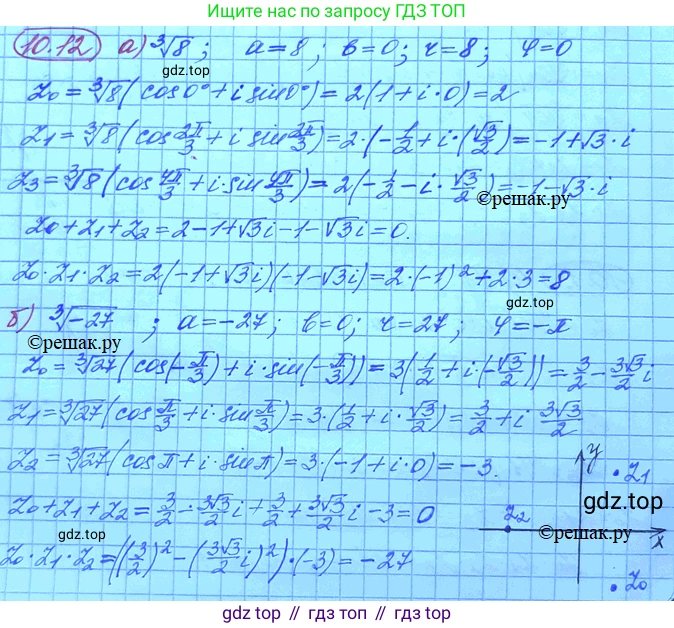 Ищите нас по запросу ГДЗ ТОП
10.12 а) ∛8; a=8; b=0; r=8; φ=0
gdz.top
z₀=∛8(cos0°+i sin0°)=2(1+i·0)=2
z₁=∛8(cos 2π/3+i sin 2π/3)=2·(-1/2+i·(√3/2)=-1+√3·i
z₃=∛8(cos 4π/3+i·sin 4π/3)=2(-1/2-i·√3/2)=-1-√3·i
©reшак.ру
z₀+z₁+z₂=2-1+√3i-1-√3i=0.
z₀·z₁·z₂=2(-1+√3i)(-1-√3i)=2·(-1)²+2·3=8
gdz.top
б) ∛-27; a=-27; b=0; r=27; φ=-π
©решак.ру
z₀=∛27(cos(-π/3)+i·sin(-π/3))=3(1/2+i·(-√3/2))=3/2-3√3/2i
z₁=∛27(cos π/3+i·sin π/3)=3·(1/2+i·√3/2)=3/2+i 3√3/2
z₂=∛27(cosπ+i·sinπ)=3·(-1+i·0)=-3.
y
z₁
gdz.top
z₀+z₁+z₂=3/2-3√3/2i+3/2+3√3/2i-3=0
z₂
©решак.ру
x
z₀·z₁·z₂=((3/2)²-(3√3/2i)²)·(-3)=-27
z₀
gdz.top // гдз топ // gdz.top